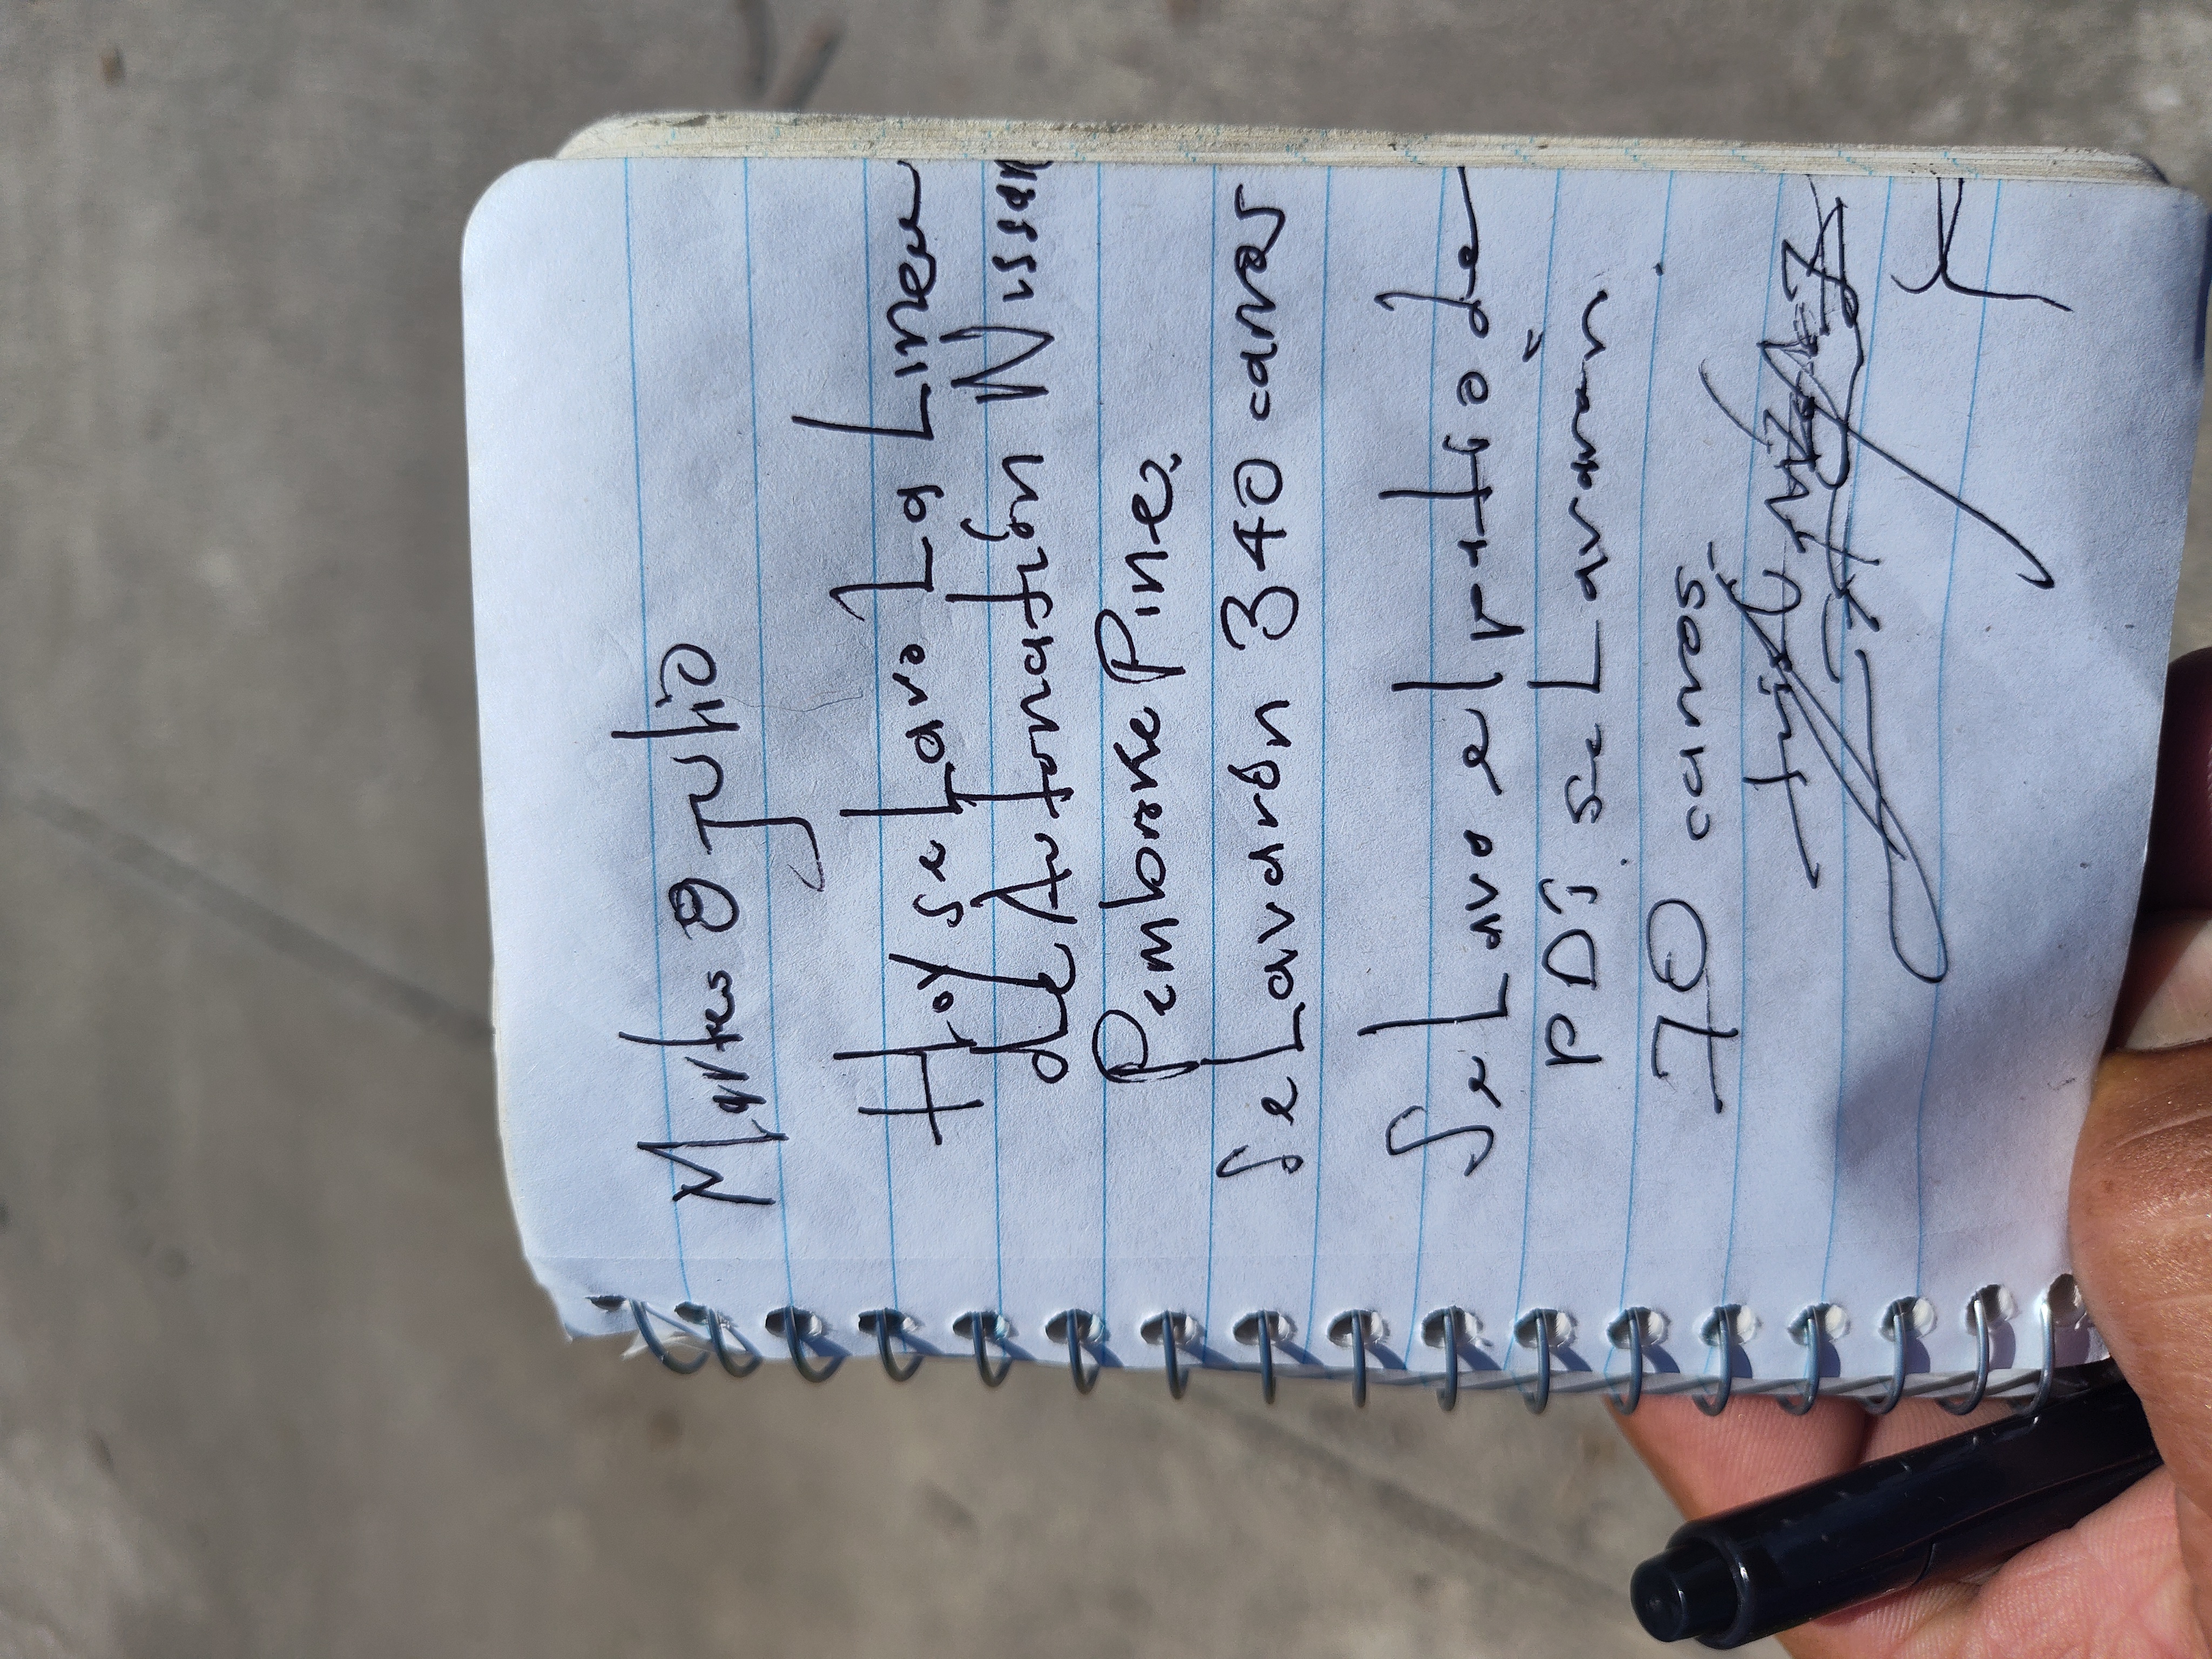 Martes 8 julio
Hoy se Lavo La Linea
de Autonation Nissan
Pembroke Pine.
se Lavarón 340 carros
Se Lavo el patio de
PDi se Lavaron
70 carros